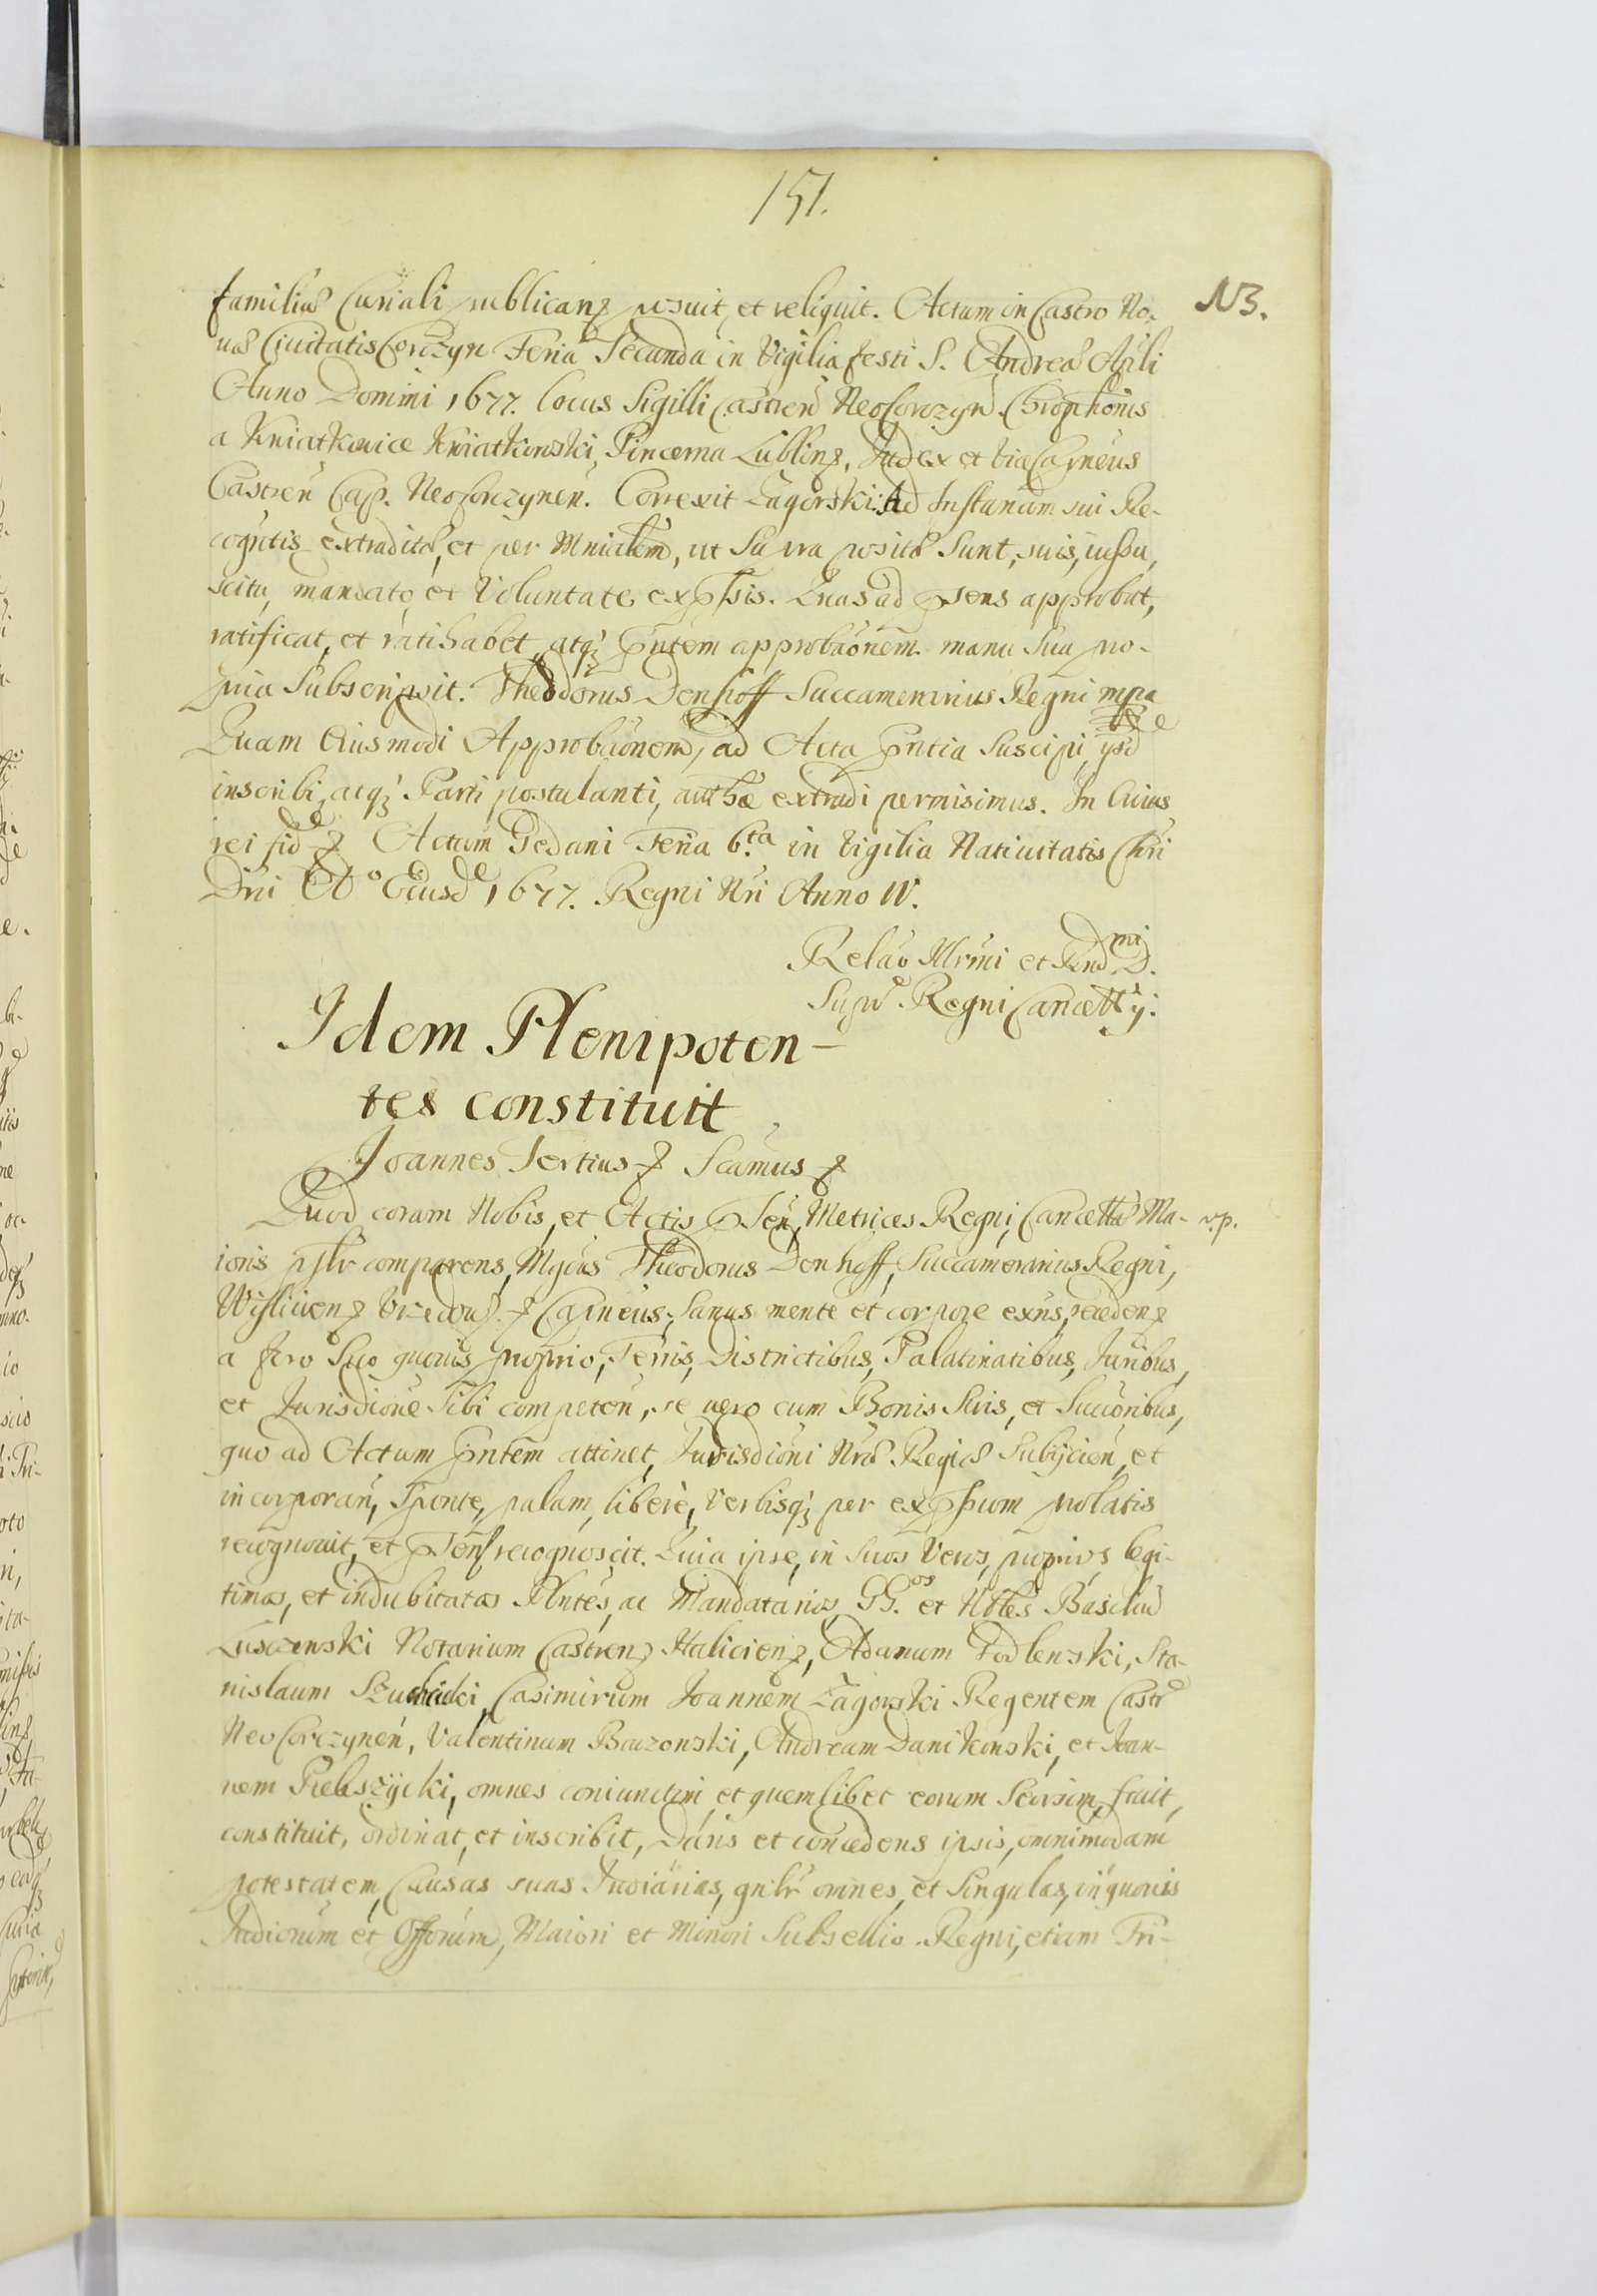 151.
familiæ Curiali publicanz posuit, et reliquit. Actum in Castro No-
NB.
uæ Ciuitatis Corczyn Feria Secunda in Vigilia festi S. Andreæ Apli
Anno Domini 1677. Locus Sigilli Castren NeoCorczyn. Chrophorus
a Kwiatkowice Kwiatkowski, Pincerna Lublinz, Judex et ViceCapneus
Castren Cap. NeoCorczynen. Correxit Zagorski: Ad Instanam sui Re-
cogntis extraditæ, et per Mnialem, ut Supra positæ Sunt, suis, iussu,
scitu, mandato, et Voluntate expssis. Quas ad psens approbat,
ratificat, et ratihabet, atqz pntem approbaonem manu Sua pro-
pria Subscripsit. Theodorus Denhoff Succamerarius Regni mpa
Quam Eiusmodi Approbaonem, ad Acta pntia Suscipi, ysd
inscribi, atqz Parti postulanti, authæ extradi permisimus. In Cuius
rei fid Actum Gedani Feria 6.ta in Vigilia Natiuitatis Chri
Dni Ao Eiusde 1677. Regni Nri Anno IV.
Relao Illrmi et Rnd mi D.
Supr. Regni Cancellrij:
Idem Plenipoten-
tes constituit
Joannes Tertius Scamus
Quod coram Nobis, et Actis psen, Metrices Regni, Cancellæ Ma-
v.p.
ioris pslr comparens, Mgcus Theodorus Denhoff, Succamerarius Regni,
Wisliciens Capneus, Sanus mente et corpore exns, recedenz
a foro Suo quouis proprio, Terris, Districtibus, Palatinatibus, Juribus,
et Jurisdione Sibi competen, se uero cum Bonis Suis, et Succoribus,
quo ad Actum pntem attinet, Jurisdioni Nræ Regiæ Subijcien, et
incorporan, Sponte, palam, libere, Verbisqz per expssum prolatis
recognouit, et psens recognoscit. Quia ipse, in Suos Veros, proprios legi-
timos, et indubitatos Plntes, ac Mandatarios, GG.os et Nbles Basiliu
Luszczewski Notarium Castrenz Halicienz, Adamum Podlewski, Sta-
nislaum Casimirum Joannem Zagorski Regentem Castr
NeoCorczynen, Valentinum Andream Dankowski, et Joan-
nem omnes coniunctim, et quemlibet eorum Seorsim, fecit,
constituit, ordinat, et inscribit, Dans et concedens ipsis, omnimodam
potestatem, Causas suas Judiarias, gnlr omnes, et Singulas, in quouis
Judiorum et Offorum, Maiori et Minori Subsellio Regni, etiam Tri-